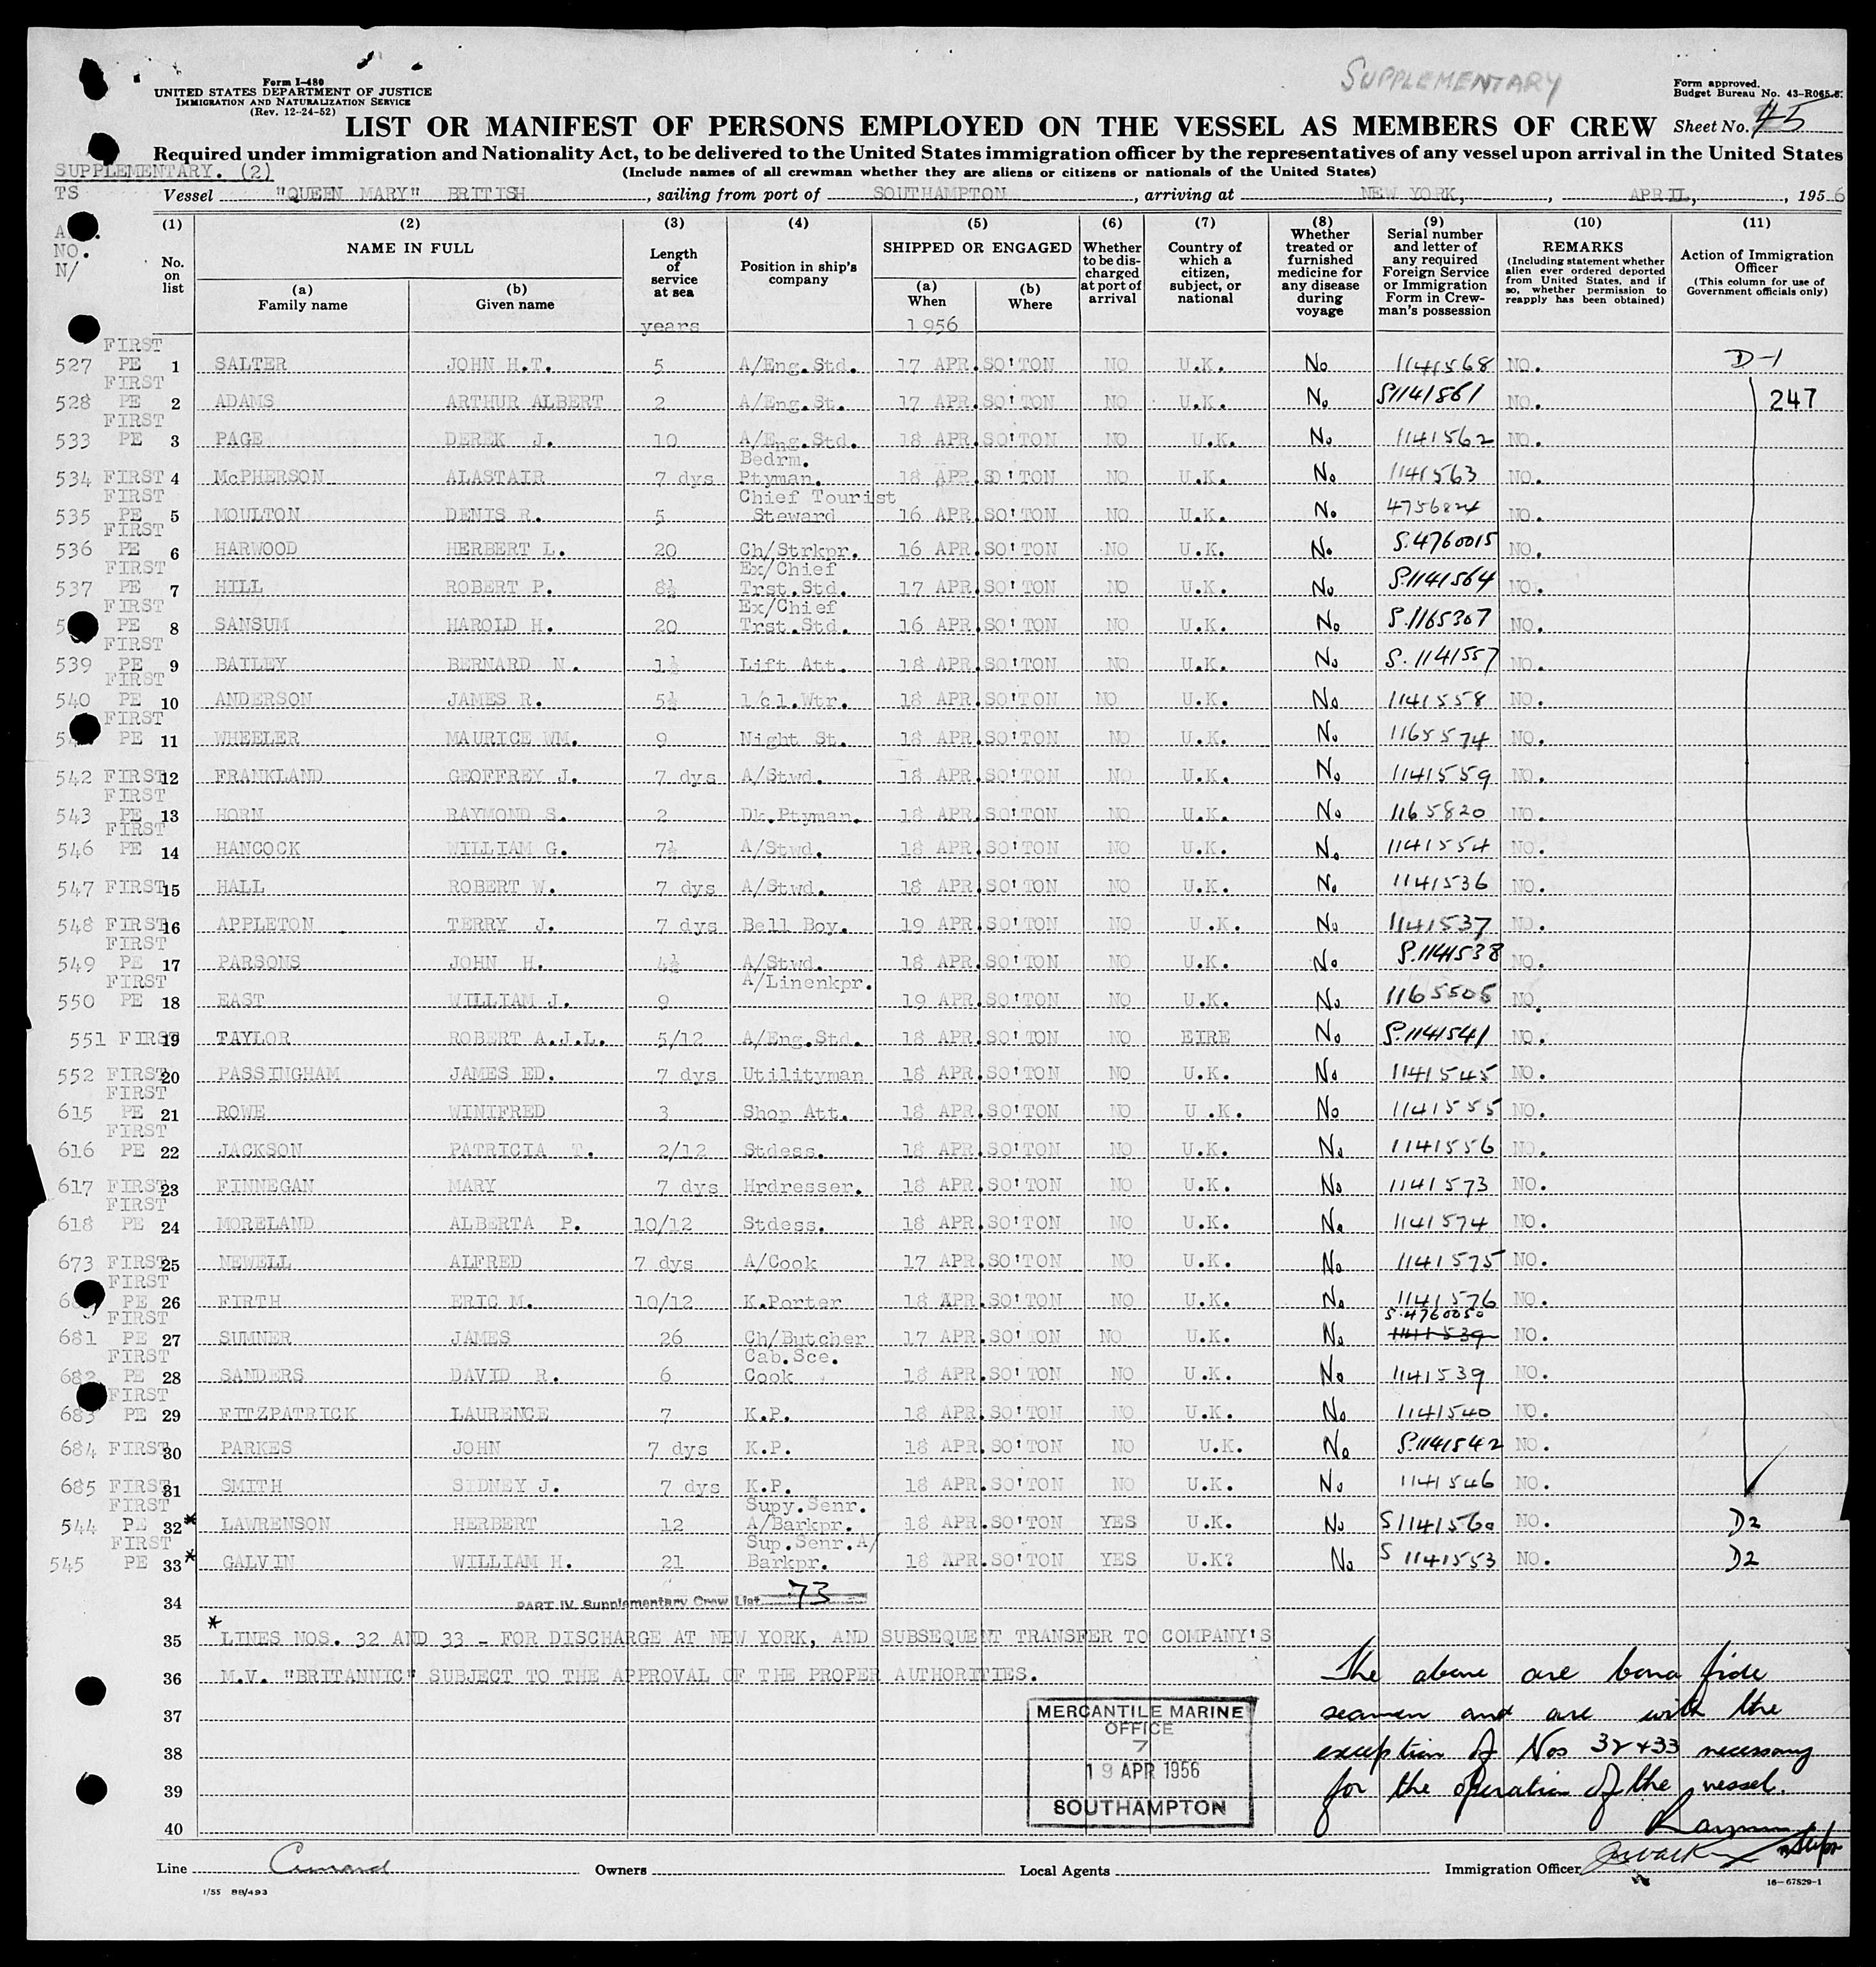 SUPPLEMENTARY
Form I-480
UNITED STATES DEPARTMENT OF JUSTICE
IMMIGRATION AND NATURALIZATION SERVICE
(Rev. 12-24-52)
Form approved.
Budget Bureau No. 43-R065.5.
LIST OR MANIFEST OF PERSONS EMPLOYED ON THE VESSEL AS MEMBERS OF CREW Sheet No. 45
Required under immigration and Nationality Act, to be delivered to the United States immigration officer by the representatives of any vessel upon arrival in the United States
SUPPLEMENTARY. (2)
(Include names of all crewman whether they are aliens or citizens or nationals of the United States)
TS Vessel "QUEEN MARY" BRITISH, sailing from port of SOUTHAMPTON, arriving at NEW YORK, , APRIL, , 1956
(1) (2) (3) (4) (5) (6) (7) (8) (9) (10) (11)
NO.
N/
No. on list
NAME IN FULL
(a) Family name
(b) Given name
Length of service at sea
years
Position in ship's company
SHIPPED OR ENGAGED
(a) When
1956
(b) Where
Whether to be discharged at port of arrival
Country of which a citizen, subject, or national
Whether treated or furnished medicine for any disease during voyage
Serial number and letter of any required Foreign Service or Immigration Form in Crewman's possession
REMARKS
(Including statement whether alien ever ordered deported from United States, and if so, whether permission to reapply has been obtained)
Action of Immigration Officer
(This column for use of Government officials only)
527 FIRST PE 1 SALTER JOHN H.T. 5 A/Eng.Std. 17 APR. SO'TON NO U.K. No 1141568 NO. D-1
528 FIRST PE 2 ADAMS ARTHUR ALBERT 2 A/Eng.St. 17 APR. SO'TON NO U.K. No S1141561 NO. 247
533 FIRST PE 3 PAGE DEREK J. 10 A/Eng.Std. 18 APR. SO'TON NO U.K. No 1141562 NO.
534 FIRST 4 McPHERSON ALASTAIR 7 dys Bedrm. Ptyman. 18 APR. SO'TON NO U.K. No 1141563 NO.
535 FIRST PE 5 MOULTON DENIS R. 5 Chief Tourist Steward 16 APR. SO'TON NO U.K. No 4756824 NO.
536 FIRST PE 6 HARWOOD HERBERT L. 20 Ch/Strkpr. 16 APR. SO'TON NO U.K. No S.4760015 NO.
537 FIRST PE 7 HILL ROBERT P. 8½ Ex/Chief Trst.Std. 17 APR. SO'TON NO U.K. No S.1141564 NO.
FIRST PE 8 SANSUM HAROLD H. 20 Ex/Chief Trst.Std. 16 APR. SO'TON NO U.K. No S.1165307 NO.
539 FIRST PE 9 BAILEY BERNARD N. 1½ Lift Att. 18 APR. SO'TON NO U.K. No S.1141557 NO.
540 FIRST PE 10 ANDERSON JAMES R. 5½ 1/cl.Wtr. 18 APR. SO'TON NO U.K. No 1141558 NO.
FIRST PE 11 WHEELER MAURICE WM. 9 Night St. 18 APR. SO'TON NO U.K. No 1165574 NO.
542 FIRST 12 FRANKLAND GEOFFREY J. 7 dys A/Stwd. 18 APR. SO'TON NO U.K. No 1141559 NO.
543 FIRST PE 13 HORN RAYMOND S. 2 Dk.Ptyman. 18 APR. SO'TON NO U.K. No 1165820 NO.
546 FIRST PE 14 HANCOCK WILLIAM G. 7½ A/Stwd. 18 APR. SO'TON NO U.K. No 1141554 NO.
547 FIRST 15 HALL ROBERT W. 7 dys A/Stwd. 18 APR. SO'TON NO U.K. No 1141536 NO.
548 FIRST 16 APPLETON TERRY J. 7 dys Bell Boy. 19 APR. SO'TON NO U.K. No 1141537 NO.
549 FIRST PE 17 PARSONS JOHN H. 4½ A/Stwd. 18 APR. SO'TON NO U.K. No S.1141538 NO.
550 FIRST PE 18 EAST WILLIAM J. 9 A/Linenkpr. 19 APR. SO'TON NO U.K. No 1165505 NO.
551 FIRST 19 TAYLOR ROBERT A.J.L. 5/12 A/Eng.Std. 18 APR. SO'TON NO EIRE No S.1141541 NO.
552 FIRST 20 PASSINGHAM JAMES ED. 7 dys Utilityman 18 APR. SO'TON NO U.K. No 1141545 NO.
615 FIRST PE 21 ROWE WINIFRED 3 Shop Att. 18 APR. SO'TON NO U.K. No 1141555 NO.
616 FIRST PE 22 JACKSON PATRICIA T. 2/12 Stdess. 18 APR. SO'TON NO U.K. No 1141556 NO.
617 FIRST 23 FINNEGAN MARY 7 dys Hrdresser. 18 APR. SO'TON NO U.K. No 1141573 NO.
618 FIRST PE 24 MORELAND ALBERTA P. 10/12 Stdess. 18 APR. SO'TON NO U.K. No 1141574 NO.
673 FIRST 25 NEWELL ALFRED 7 dys A/Cook 17 APR. SO'TON NO U.K. No 1141575 NO.
FIRST PE 26 FIRTH ERIC M. 10/12 K.Porter 18 APR. SO'TON NO U.K. No 1141576 NO.
681 FIRST PE 27 SUMNER JAMES 26 Ch/Butcher 17 APR. SO'TON NO U.K. No S.4760050 1141539 NO.
682 FIRST PE 28 SANDERS DAVID R. 6 Cab.Sce. Cook 18 APR. SO'TON NO U.K. No 1141539 NO.
683 FIRST PE 29 FITZPATRICK LAURENCE 7 K.P. 18 APR. SO'TON NO U.K. No 1141540 NO.
684 FIRST 30 PARKES JOHN 7 dys K.P. 18 APR. SO'TON NO U.K. No S.1141542 NO.
685 FIRST 31 SMITH SIDNEY J. 7 dys K.P. 18 APR. SO'TON NO U.K. No 1141546 NO.
544 FIRST PE 32* LAWRENSON HERBERT 12 Supy.Senr. A/Barkpr. 18 APR. SO'TON YES U.K. No S1141560 NO. D2
545 FIRST PE 33* GALVIN WILLIAM H. 21 Sup.Senr.A/ Barkpr. 18 APR. SO'TON YES U.K? No S 1141553 NO. D2
34 PART IV Supplementary Crew List 73
35 * LINES NOS. 32 AND 33 - FOR DISCHARGE AT NEW YORK, AND SUBSEQUENT TRANSFER TO COMPANY'S
36 M.V. "BRITANNIC" SUBJECT TO THE APPROVAL OF THE PROPER AUTHORITIES.
37
38
39
40
MERCANTILE MARINE
OFFICE
7
19 APR 1956
SOUTHAMPTON
The above are bona fide
seamen and are with the
exception of Nos 32 + 33 necessary
for the operation of the vessel.
Line Cunard Owners Local Agents Immigration Officer
1/55 88/493
16-67529-1